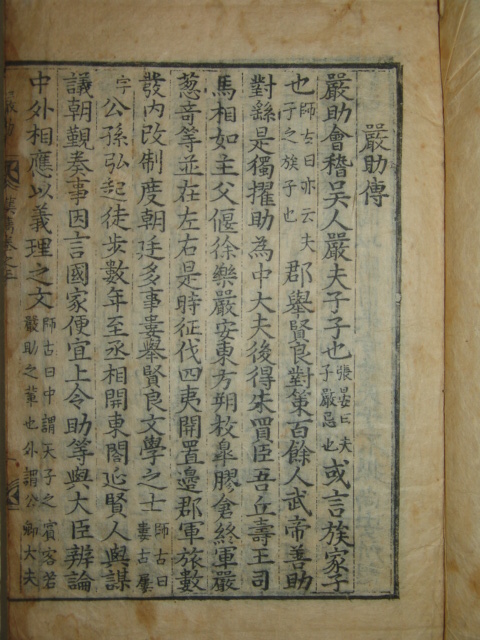 嚴助傳
嚴助會稽吳人嚴夫子子也張晏曰夫子嚴忌也或言族家子
也師古曰亦云夫子之族子也郡擧賢良對策百餘人武帝善助
對繇是獨擢助為中大夫後得朱買臣吾丘壽王司
馬相如主父偃徐樂嚴安東方朔枚皐膠倉終軍嚴
葱竒等並在左右是時征伐四夷開置邊郡軍旅數
發內改制度朝廷多事婁擧賢良文學之士師古曰婁古屢
字公孫弘起徒步數年至丞相開東閤延賢人與謀
議朝覲奏事因言國家便宜上令助等與大臣辨論
中外相應以義理之文師古曰中謂天子之賓客若嚴助之輩也外謂公卿大夫